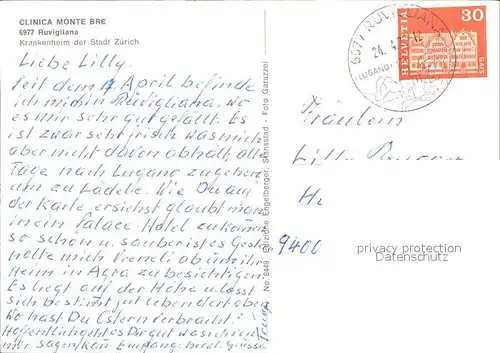 CLINICA MONTE BRE
6977 Ruvigliana
Krankenheim der Stadt Zürich
Liebe Lilly.
Seit dem 17. April befinde
ich mich in Ruvigliana, wo
es mir sehr gut gefällt. Es
ist zwar sehr frisch was mich
aber nicht davon abhält, alle
Tage nach Lugano zu gehen
um zu Lädele. Wie Du auf
der Karte ersiehst glaubt man
in ein Palace-Hotel zu kommen
so schön u. sauber ist es. Gestern
holte mich Vreneli ab um ihr
Heim in Agra zu besichtigen.
Es liegt auf der Höhe u. lässt
sich bestimmt gut leben dort oben
Wo hast Du Ostern verbracht?
Hoffentlich geht es Dir gut was ich
mir sagen kann. Empfang herzl. Grüsse
No. 8449 Deutsche Engelberger, Stansstad - Foto Garazzei
6977 RUVIGLIANA
24. 4.
LUGANO
HELVETIA
30
GAIS
Fräulein
9400
privacy protection
Datenschutz